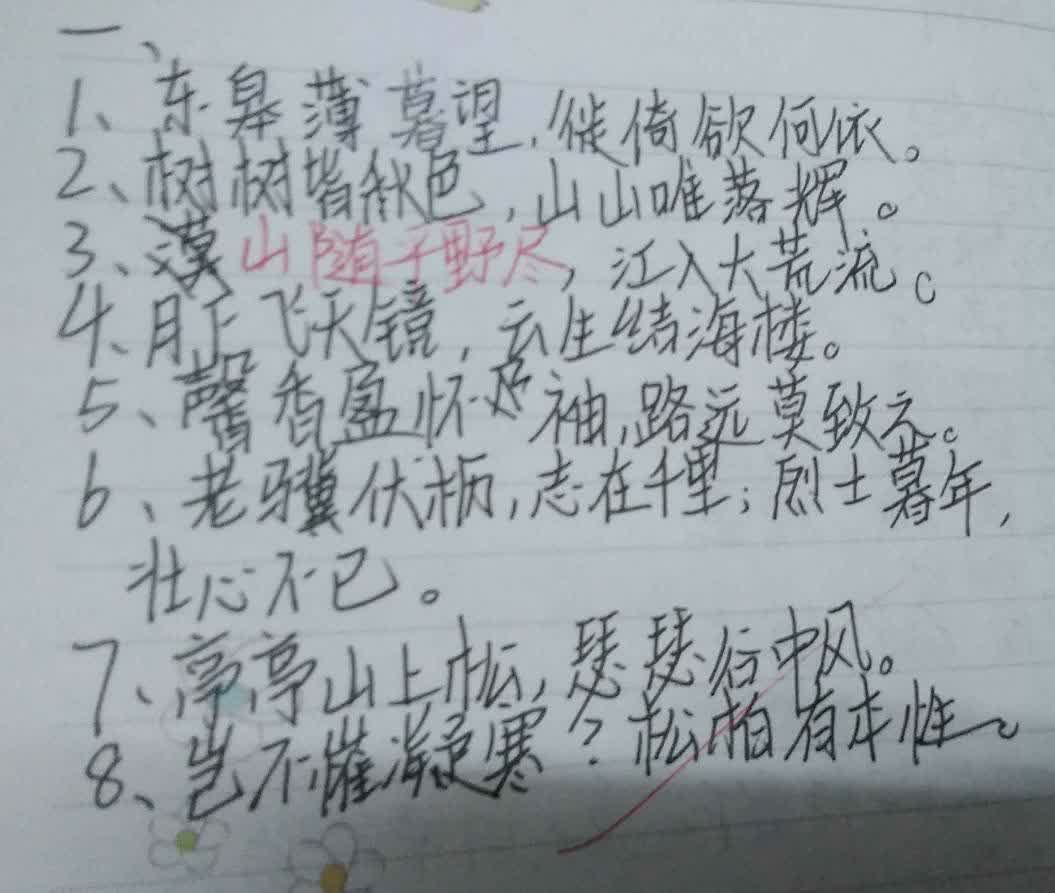 一、
1、东皋薄暮望,徙倚欲何依。
2、树树皆秋色,山山唯落辉。
3、山随平野尽,江入大荒流。
4、月下飞天镜,云生结海楼。
5、馨香盈怀袖,路远莫致之。
6、老骥伏枥,志在千里;烈士暮年,
壮心不已。
7、亭亭山上松,瑟瑟谷中风。
8、岂不罹凝寒?松柏有本性。